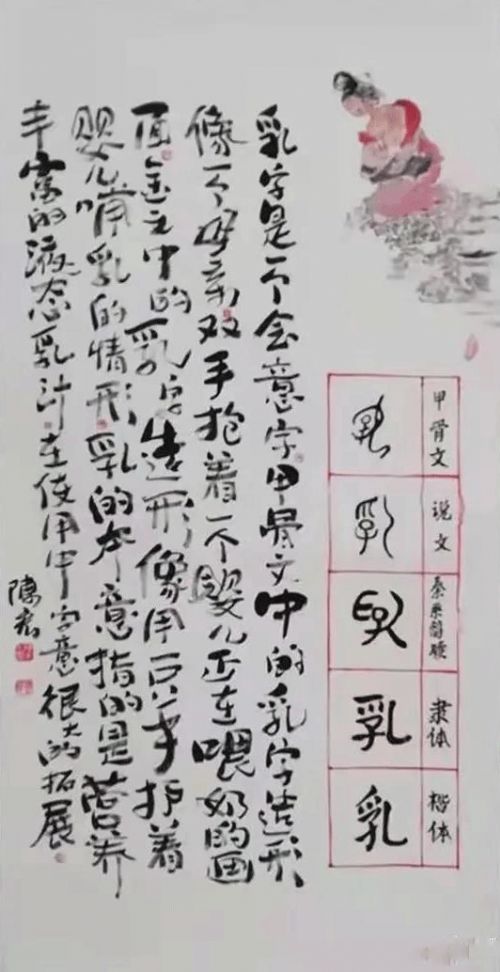 乳字是一个会意字甲骨文中的乳字造形
像一个母亲双手抱着一个婴儿正在喂奶的画
面金文中的乳字造形像用一只手护着
婴儿哺乳的情形乳的本意指的是营养
丰富的液态乳汁在使用中字意很大的拓展
陳
甲骨文
说文 乳
简牍
隶体 乳
楷体 乳